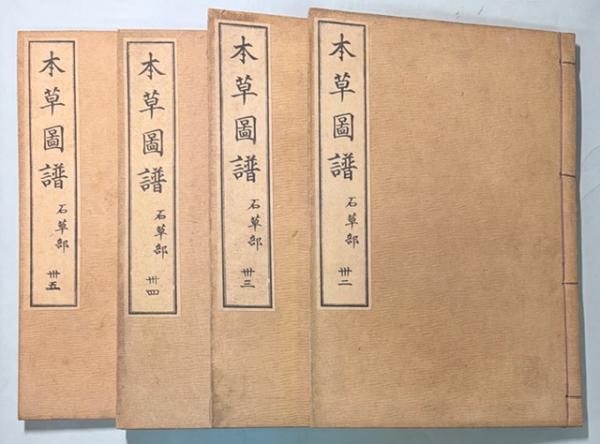 本草圖譜 石草部 卅二
本草圖譜 石草部 卅三
本草圖譜 石草部 卅四
本草圖譜 石草部 卅五